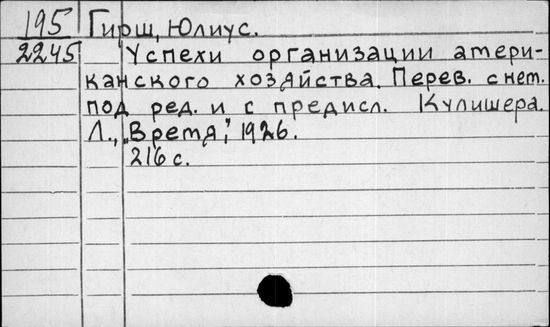 195 Гирш, Юлиус.
2245 Успехи организации амери-
канского хозяйства. Перев. с нем.
под ред. и с предисл. Кулишера.
Л., „Время", 1926.
216 с.